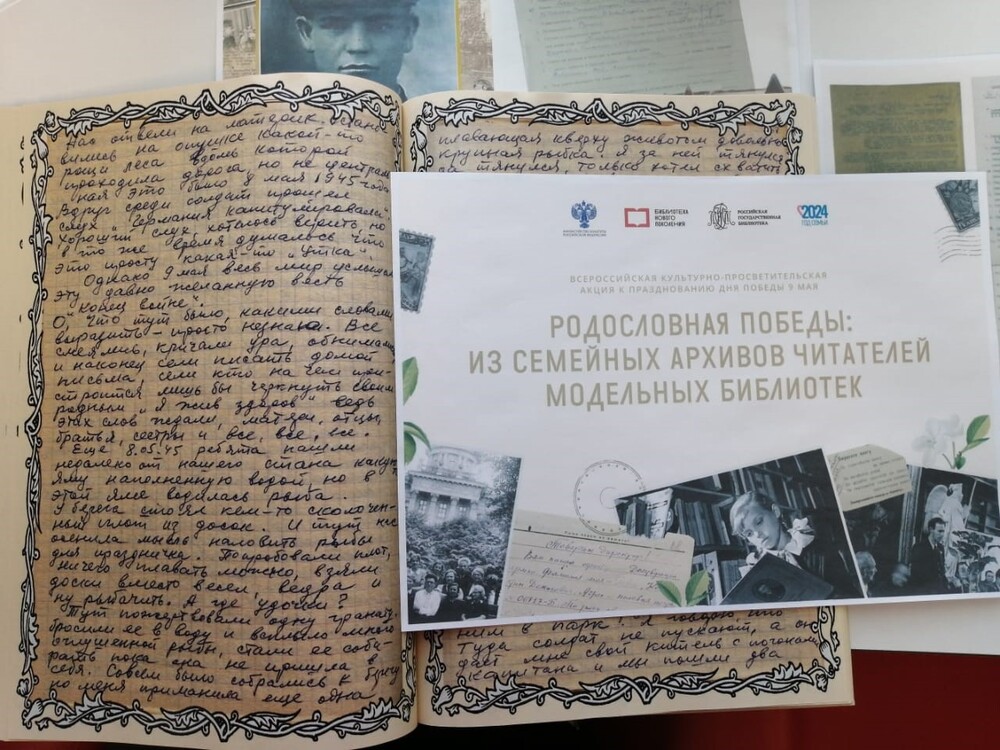 Нас отвели на материк, остано
вились на опушке какой-то
рощи леса вдоль которой
проходила дорога, но не централь
ная это было 8 мая 1945 года
Вдруг среди солдат прошел
слух „Германия капитулировала"
хороший слух, хотелось верить, но
в то же время думалось, что
это просто какая-то „утка".
Однако 9 мая весь мир услышал
эту давно желанную весть
"Конец войне".
О, что тут было, какими словами
выразить – просто незнаю. Все
смеялись, кричали ура, обнимались
и наконец сели писать домой
письма, сели кто на чем при-
строится лишь бы черкнуть своим
родным „Я жив здоров" ведь
этих слов ждали, матери, отцы,
братья, сестры и все, все, все.
Еще 8.05.45 ребята нашли
недалеко от нашего стана какую
яму наполненную водой, но в
этой яме водилась рыба.
У берега стоял кем-то сколочен-
ный плот из досок. И тут нас
осенила мысль наловить рыбы
для праздника. Попробовали плот,
ничего плавать можно, взяли
доски вместо весел, ведра и
ну рыбачить. А где удочки?
Тут пожертвовали одну гранату,
бросили ее в воду и всплыло много
оглушенной рыбы, стали ее соби-
рать пока она не пришла в
себя. Совсем было собрались к берегу
но меня приманила еще одна
плавающая кверху животом довольно
крупная рыбка. Я за ней тянулся
да тянулся, только хотел схватить
МИНИСТЕРСТВО КУЛЬТУРЫ
РОССИЙСКОЙ ФЕДЕРАЦИИ
БИБЛИОТЕКА
НОВОГО
ПОКОЛЕНИЯ
РОССИЙСКАЯ
ГОСУДАРСТВЕННАЯ
БИБЛИОТЕКА
2024
ГОД СЕМЬИ
ВСЕРОССИЙСКАЯ КУЛЬТУРНО-ПРОСВЕТИТЕЛЬСКАЯ
АКЦИЯ К ПРАЗДНОВАНИЮ ДНЯ ПОБЕДЫ 9 МАЯ
РОДОСЛОВНАЯ ПОБЕДЫ:
ИЗ СЕМЕЙНЫХ АРХИВОВ ЧИТАТЕЛЕЙ
МОДЕЛЬНЫХ БИБЛИОТЕК
ним в парк! Я говорю, что
туда солдат не пускают, а он
дает мне свой китель с погонами
капитана и мы пошли два